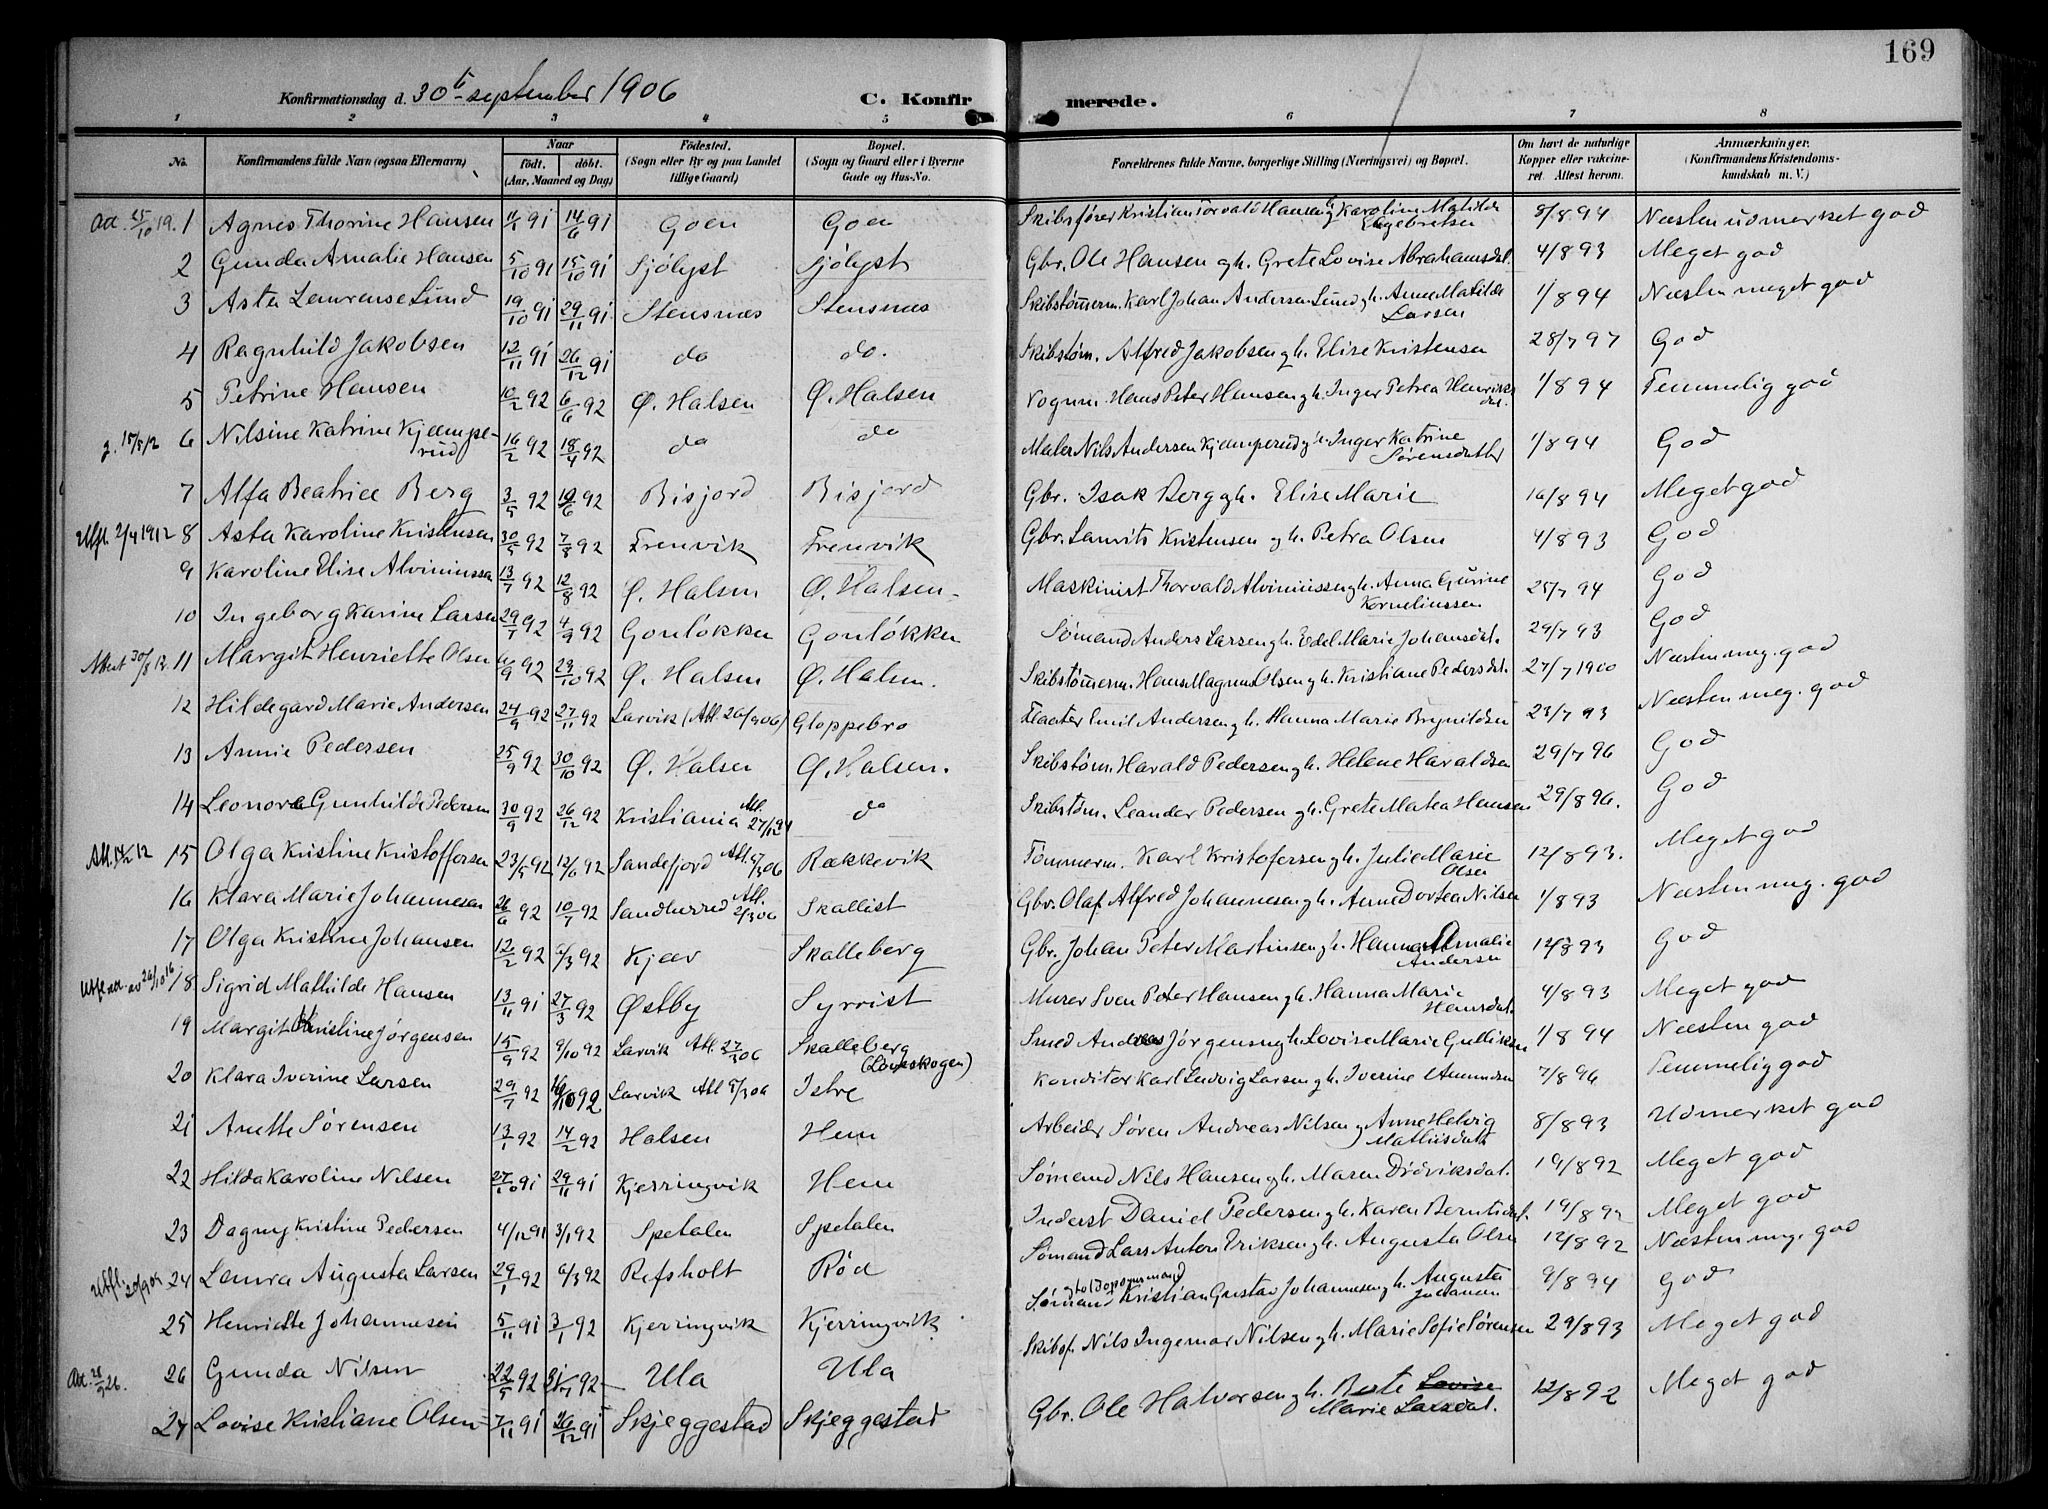 169
Konfirmationsdag d. 30te september 1906 C. Konfirmerede.
1 2 3 4 5 6 7 8
No. Konfirmandens fulde Navn (ogsaa Efternavn) Naar født. døbt. (Aar, Maaned og Dag) Fødested. (Sogn eller By og paa Landet tillige Gaard) Bopæl. (Sogn og Gaard eller i Byerne Gade og Hus-No. Forældrenes fulde Navne, borgerlige Stilling (Næringsvei) og Bopæl. Om havt de naturlige Kopper eller vakcineret. Attest herom. Anmærkninger. (Konfirmandens Kristendomskundskab m. V.)
Att. 25/10 19. 1 Agnes Thorine Hansen 91 14/6 91 Goen Goen Skibsfører Kristian Torvald Hansen og Karoline Matilde Engebretsen 8/8 94 Næsten udmerket god
2 Gunda Amalie Hansen 5/10 91 15/10 91 Sjölyst Sjölyst Gbr. Ole Hansen gh. Grete Lovise Abrahamsdt. 4/8 93 Meget god
3 Asta Laurense Lund 19/10 91 29/11 91 Stensnæs Stensnæs Skibstømerm. Karl Johan Andersen Lund gh. Anne Matilde Larsen 1/8 94 Næsten meget god
4 Ragnhild Jakobsen 12/11 91 26/12 91 do do. Skibstøm. Alfred Jakobsen gh. Elise Kristensen 28/7 97 God
5 Petrine Hansen 10/2 92 6/6 92 Ø. Halsen Ø. Halsen Vognm. Hans Peter Hansen gh. Inger Petrea Henriksdat. 1/8 94 Temmelig god
g. 15/5 12 6 Nilsine Katrine Kjæmperud 16/2 92 18/4 92 do do Maler Nils Andersen Kjæmperud gh. Inger Katrine Sørensdatter 1/8 94 God
7 Alfa Beatrice Berg 3/5 92 92 Bisjord Bisjord Gbr. Isak Berg gh. Elise Marie 16/8 94 Meget god
Utfl. 2/4 1912 8 Asta Karoline Kristensen 30/5 92 7/8 92 Frenvik Frenvik Gbr. Lauvits Kristensen gh. Petra Olsen 4/8 93 God
9 Karoline Elise Alviniussen 13/7 92 12/8 92 Ø. Halsen Ø. Halsen Maskinist Thorvald Alviniussen gh. Anna Gurine Korneliussen 25/7 94 God
10 Ingeborg Karine Larsen 29/7 92 4/9 92 Gonløkken Gonløkken Sømand Anders Larsen gh. Edel Marie Johansdt. 29/7 93 God
Attest 30/8 12. 11 Margit Henriette Olsen 6/9 92 23/10 92 Ø. Halsen Ø. Halsen. Skibstømerm. Hans Magnus Olsen gh. Kristiane Pedersdat. 27/7 1900 Næsten meg. god
12 Hildegard Marie Andersen 24/9 92 27/11 92 Larvik (Att. 26/9 06) Gloppebro Flaater Emil Andersen gh. Hanna Marie Brynildsen 23/7 93 Næsten meg. god
13 Annie Pedersen 25/9 92 30/10 92 Ø. Halsen Ø. Halsen. Skibstøm. Harald Pedersen gh. Helene Haraldsen 29/7 96 God
14 Leonora Gunhilde Pedersen 30/9 92 26/12 92 Kristiania Att. 27/12 94 do Skibstøm. Leander Pedersen gh. Grete Matea Hansen 29/8 96. God
Att. 14/2 12 15 Olga Kristine Kristoffersen 23/5 92 12/6 92 Sandefjord Att. 3 06 Rækkevik Tømmerm. Karl Kristofersen gh. Julie Marie Olsen 12/8 93. Meget god
16 Klara Marie Johannesen 26/6 92 10/7 92 Sandherred Att. 2/3 06 Skallist Gbr. Olaf Alfred Johannesen gh. Anne Dortea Nilsen 1/8 93 Næsten meg. god
17 Olga Kristine Johansen 12/2 92 6/3 92 Kjær Skalleberg Gbr. Johan Peter Martinsen gh. Hanna Amalie Andersen 12/8 93 God
Utfl. att. av 26/10 16 18 Sigrid Mathilde Hansen 13/11 91 27/3 92 Østby Syrrist Murer Sven Peter Hansen gh. Hanna Marie Hansdat. 4/8 93 Meget god
19 Margit Kristine Jørgensen 15/9 92 9/10 92 Larvik Att. 06 Skalleberg (Løveskogen) Smed Andreas Jørgensen gh. Lovise Marie Gulliksen 1/8 94 Næsten god
20 Klara Iverine Larsen 29/7 92 92 Larvik Att 9/3 06 Istre Konditor Karl Ludvig Larsen gh. Iverine Amundsen 7/8 96 Temmelig god
21 Anette Sørensen 13/1 92 14/2 92 Halsen Hem Arbeider Søren Andreas Nilsen g Anne Helvig Mathisdatt 8/8 93 Udmerket god
22 Hilda Karoline Nilsen 27/10 91 29/11 91 Kjerringvik Hem Sømand Nils Hansen gh. Maren Didriksdat. 19/8 92 Meget god
23 Dagny Kristine Pedersen 4/12 91 3/1 92 Spetalen Spetalen Inderst Daniel Pedersen gh. Karen Berntsdat. 19/8 92 Meget god
Utfl. 20/9 09 24 Laura Augusta Larsen 29/1 92 6/3 92 Refsholt Rød Sømand Lars Anton Eriksen gh. Augusta Olsen 12/8 92 Næsten meg. god
25 Henriette Johannesen 5/11 91 3/1 92 Kjerringvik Kjerringvik Sømand Kristian Gustav Johannesen gh. Augusta Johansen 9/8 94 God
Att. 28/9 26. 26 Gunda Nilsen 22/5 92 31/7 92 Ula Ula Skibsf. Nils Ingemar Nilsen gh. Marie Sofie Sørensen 29/8 93 Meget god
27 Lovise Kristiane Olsen 7/11 91 26/12 91 Skjeggestad Skjeggestad Gbr. Ole Halvorsen gh. Berte Lovise Marie Larsdat. 12/8 92 Meget god